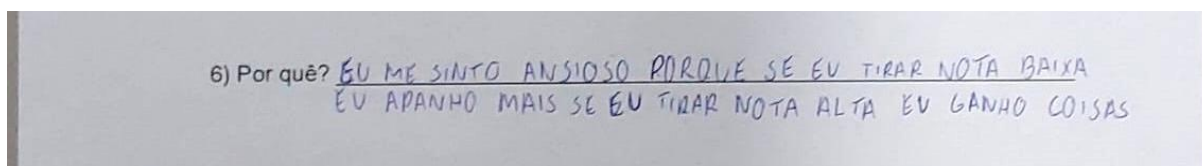 6) Por quê? EU ME SINTO ANSIOSO PORQUE SE EU TIRAR NOTA BAIXA
EU APANHO MAIS SE EU TIRAR NOTA ALTA EU GANHO COISAS